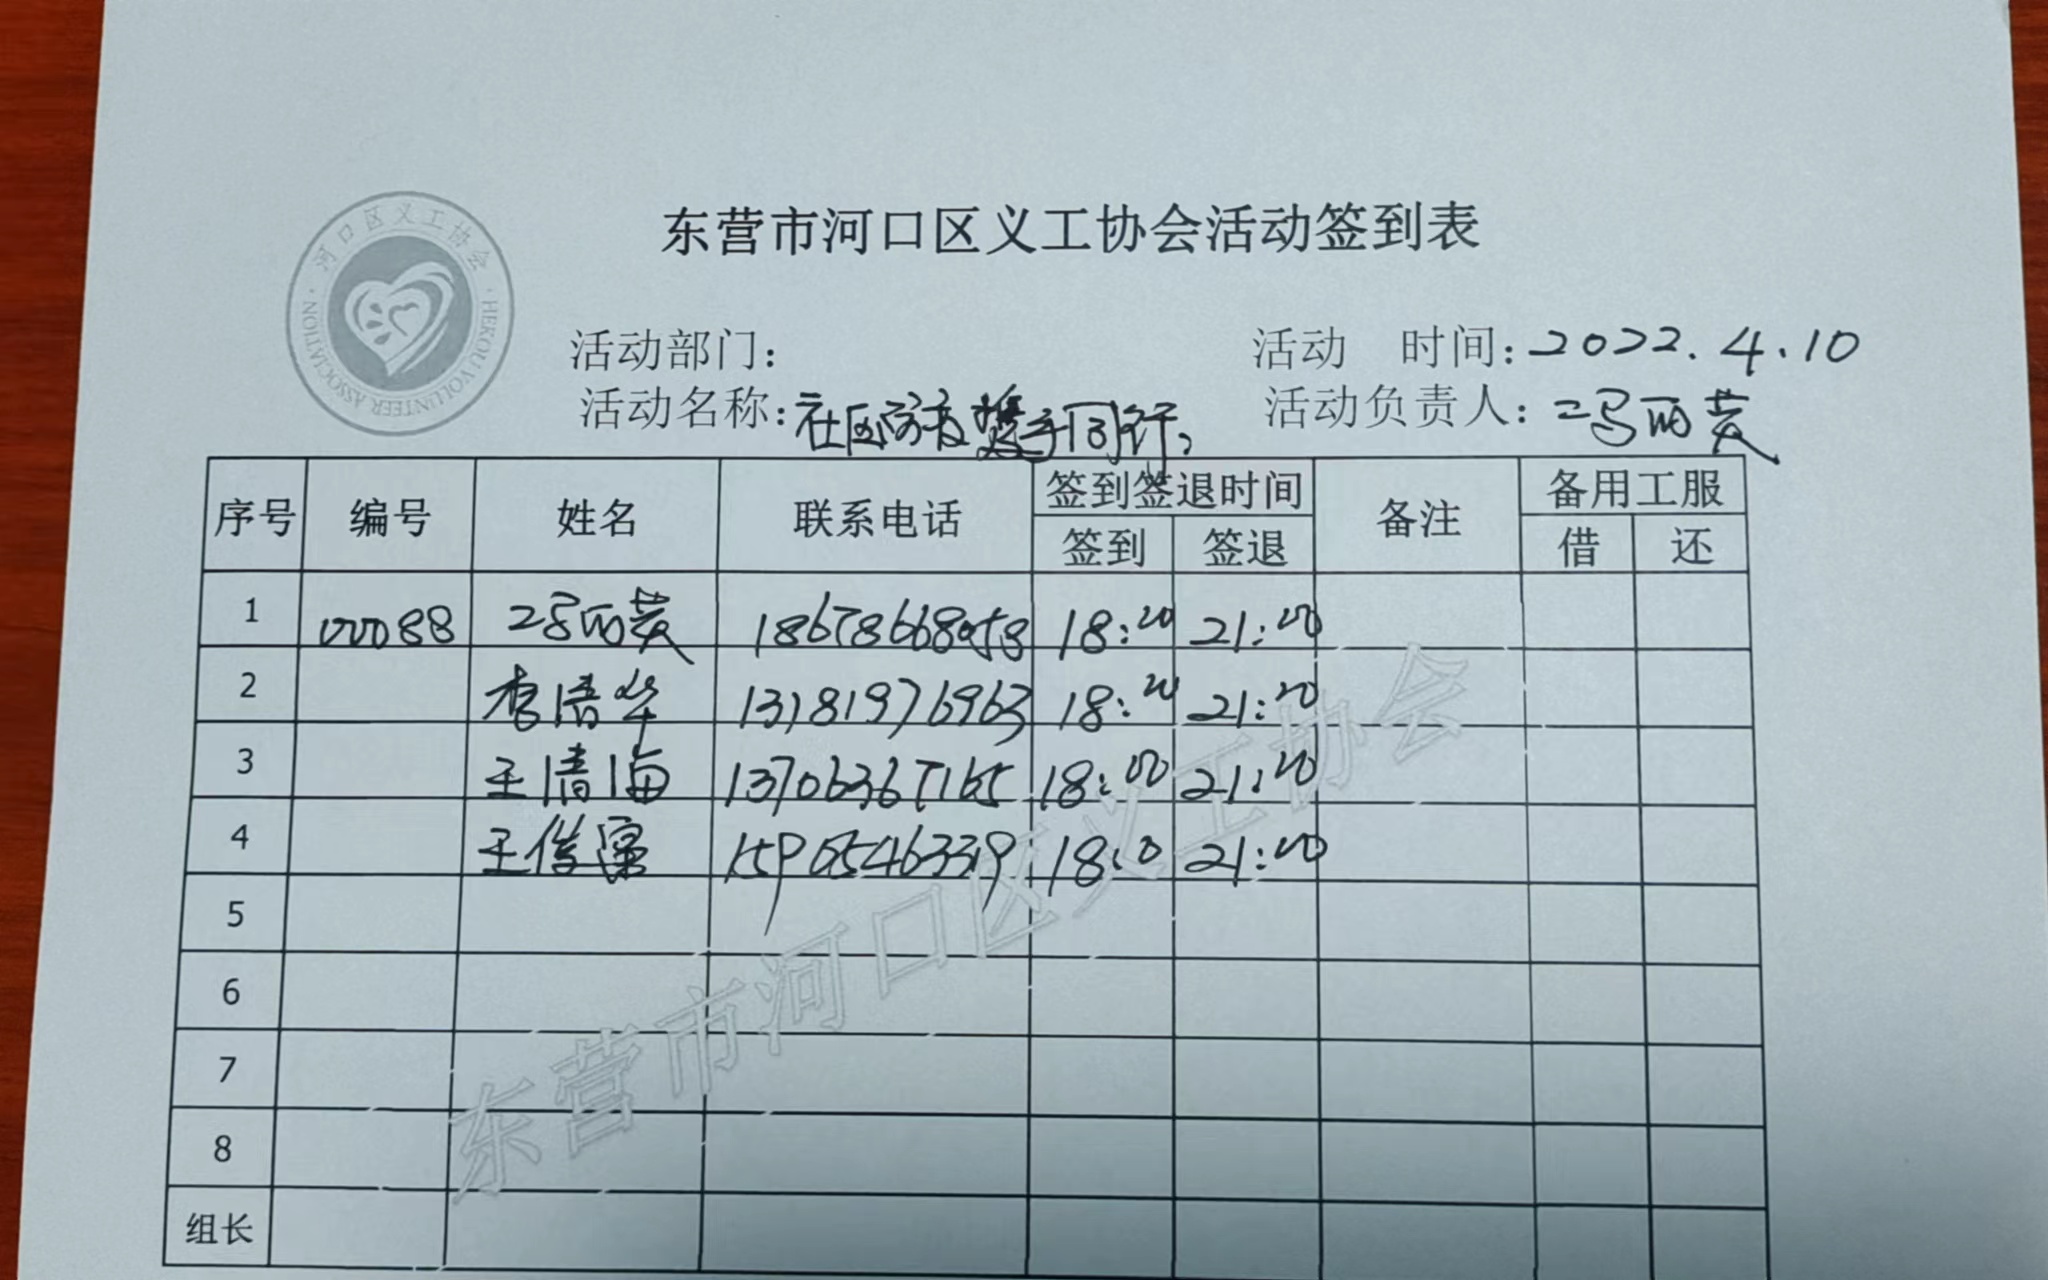 河口区义工协会
HEKOU VOLUNTEER ASSOCIATION
东营市河口区义工协会活动签到表
活动部门： 活动 时间：2022.4.10
活动名称：社区防疫携手同行, 活动负责人：冯丽英
序号 编号 姓名 联系电话 签到签退时间 备注 备用工服
签到 签退 借 还
1 00088 冯丽英 18:20 21:00
2 李清华 13181976963 18:20 21:00
3 王清海 13706367165 18:00 21:00
4 王俊 15965463319 18:0 21:00
5
6
7
8
组长
东营市河口区义工协会